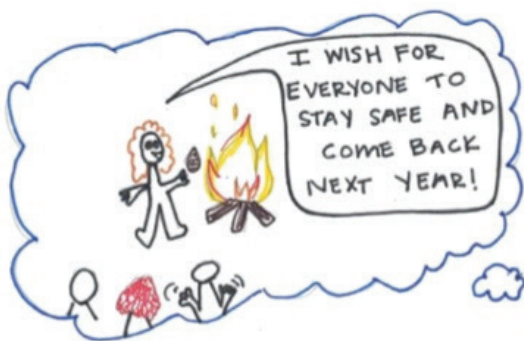 I WISH FOR
EVERYONE TO
STAY SAFE AND
COME BACK
NEXT YEAR!